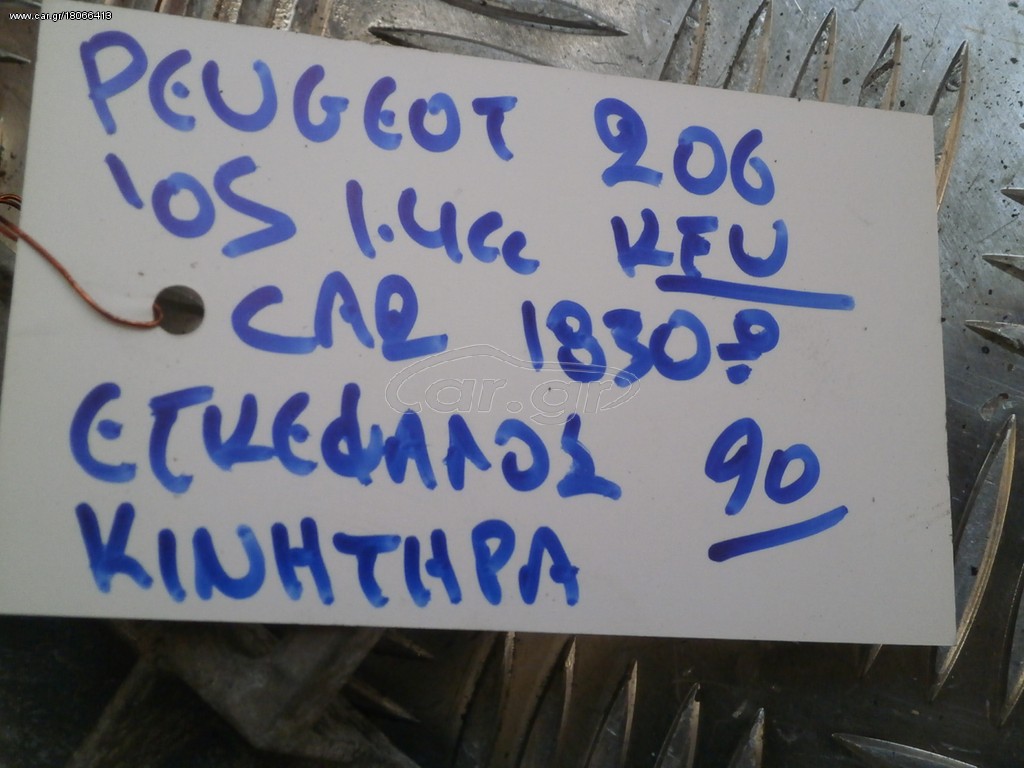 www.car.gr/18066413
PEUGEOT 206
'05 1.4cc KFU
CAR 1830
car.gr
ΕΓΚΕΦΑΛΟΣ 90
ΚΙΝΗΤΗΡΑ